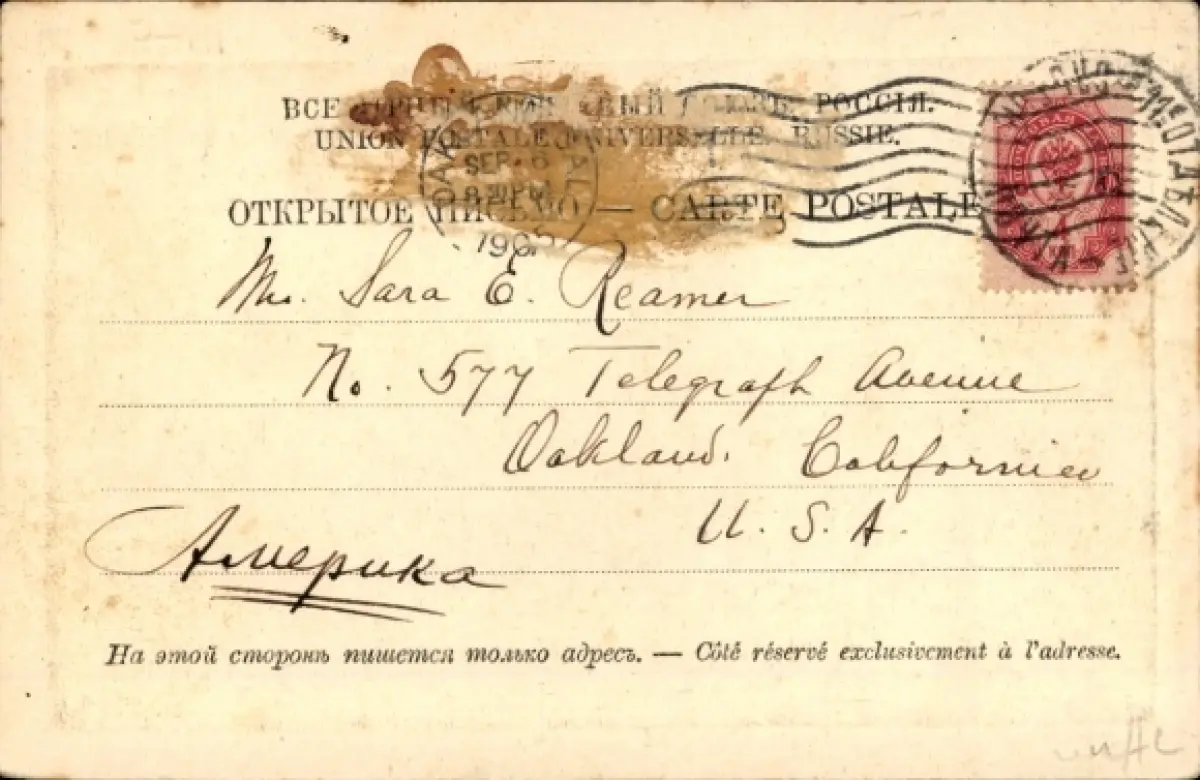 ВСЕМІРНЫЙ ПОЧТОВЫЙ СОЮЗЪ. РОССІЯ.
UNION POSTALE UNIVERSELLE. RUSSIE.
SEP 6
8 30 PM
190
ОТКРЫТОЕ ПИСЬМО — CARTE POSTALE
Mrs. Sara E. Reamer
No. 577 Telegraph Avenue
Oakland. California
U. S. A.
Америка
На этой сторонѣ пишется только адресъ. — Côté réservé exclusivement à l'adresse.